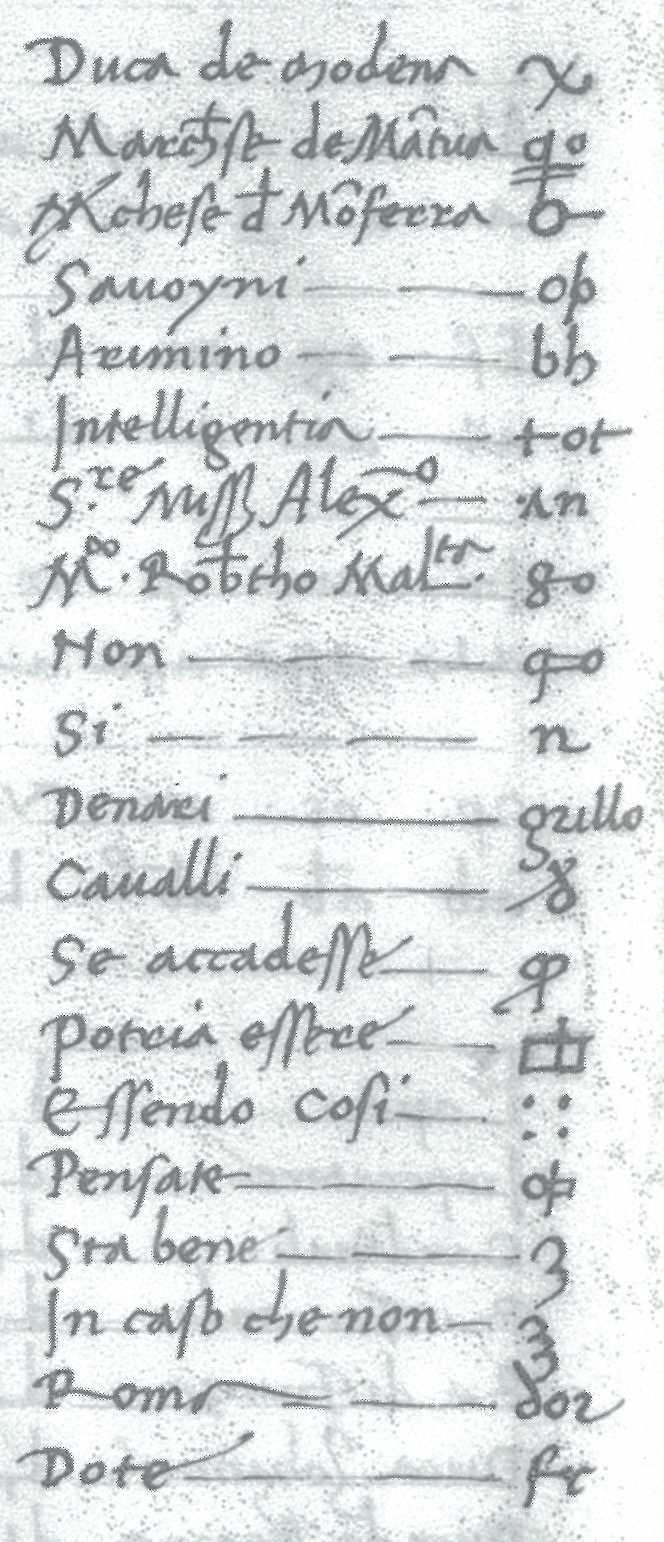 Duca de modena
Marchese de Mãtua qº
Mchese d Mõferra
Sauoyni oþ
Arimino bh
Intelligentia tot
S.re Alexº
Mº. Robtho Maltr. go
Non
Si n
Denari grillo
Caualli
Se accadesse
Potria essere
Essendo cosi ::
Pensate
Sta bene 3
In caso che non
Roma dor
Dote